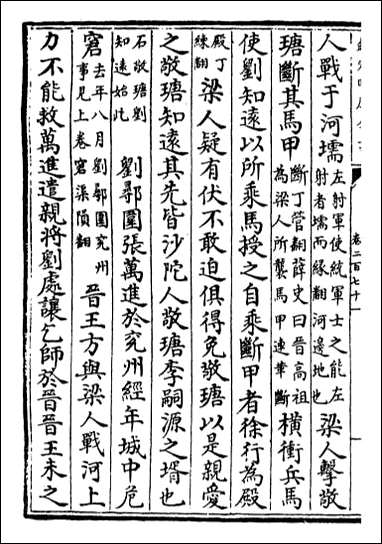 卷二百七十一
人戰于河壖左射軍使統軍士之能左射者壖而緣翻河邊地也梁人擊敬
瑭斷其馬甲斷丁管翻薛史曰晉高祖為梁人所襲馬甲連革斷橫衝兵馬
使劉知遠以所乘馬授之自乘斷甲者徐行為殿
殿丁練翻梁人疑有伏不敢迫俱得免敬瑭以是親愛
之敬瑭知遠其先皆沙陀人敬瑭李嗣源之壻也
石敬瑭劉知遠始此劉鄩圍張萬進於兗州經年城中危
窘去年八月劉鄩圍兗州事見上卷窘渠隕翻晉王方與梁人戰河上
力不能救萬進遣親將劉處讓乞師於晉晉王未之